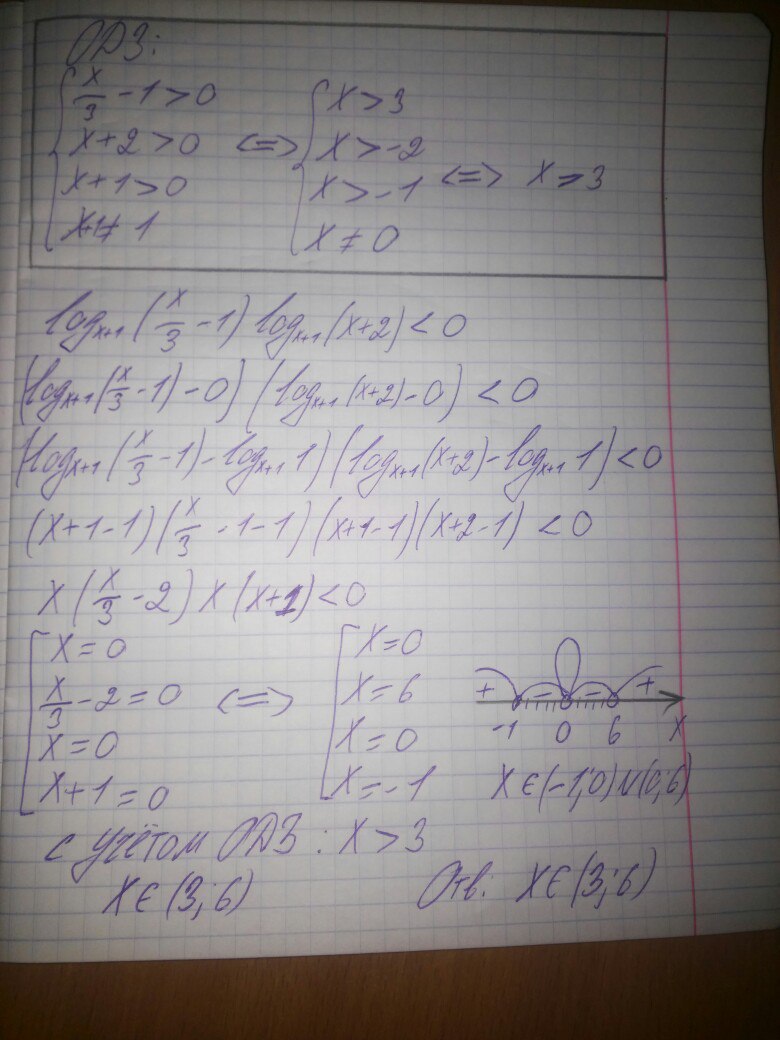 ОДЗ:
{ x/3 - 1 > 0
x + 2 > 0
x + 1 > 0
x+1 ≠ 1
<=>
{ x > 3
x > -2
x > -1
x ≠ 0
<=> x > 3
log_{x+1}(x/3 - 1) log_{x+1}(x+2) < 0
(log_{x+1}(x/3 - 1) - 0)(log_{x+1}(x+2) - 0) < 0
(log_{x+1}(x/3 - 1) - log_{x+1} 1)(log_{x+1}(x+2) - log_{x+1} 1) < 0
(x+1-1)(x/3 - 1 - 1)(x+1-1)(x+2-1) < 0
x(x/3 - 2) x(x+1) < 0
[ x = 0
x/3 - 2 = 0
x = 0
x + 1 = 0
<=>
[ x = 0
x = 6
x = 0
x = -1
+ - - +
-1 0 6 x
x ∈ (-1; 0) ∪ (0; 6)
с учётом ОДЗ: x > 3
x ∈ (3; 6)
Отв: x ∈ (3; 6)